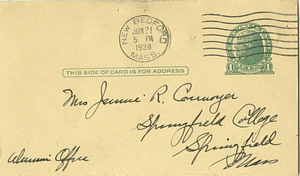 NEW BEDFORD
JUN 21
5 PM
1938
MASS.
THIS SIDE OF CARD IS FOR ADDRESS
Mrs Jennie R.
Springfield College
Springfield
Mass
Alumni Office